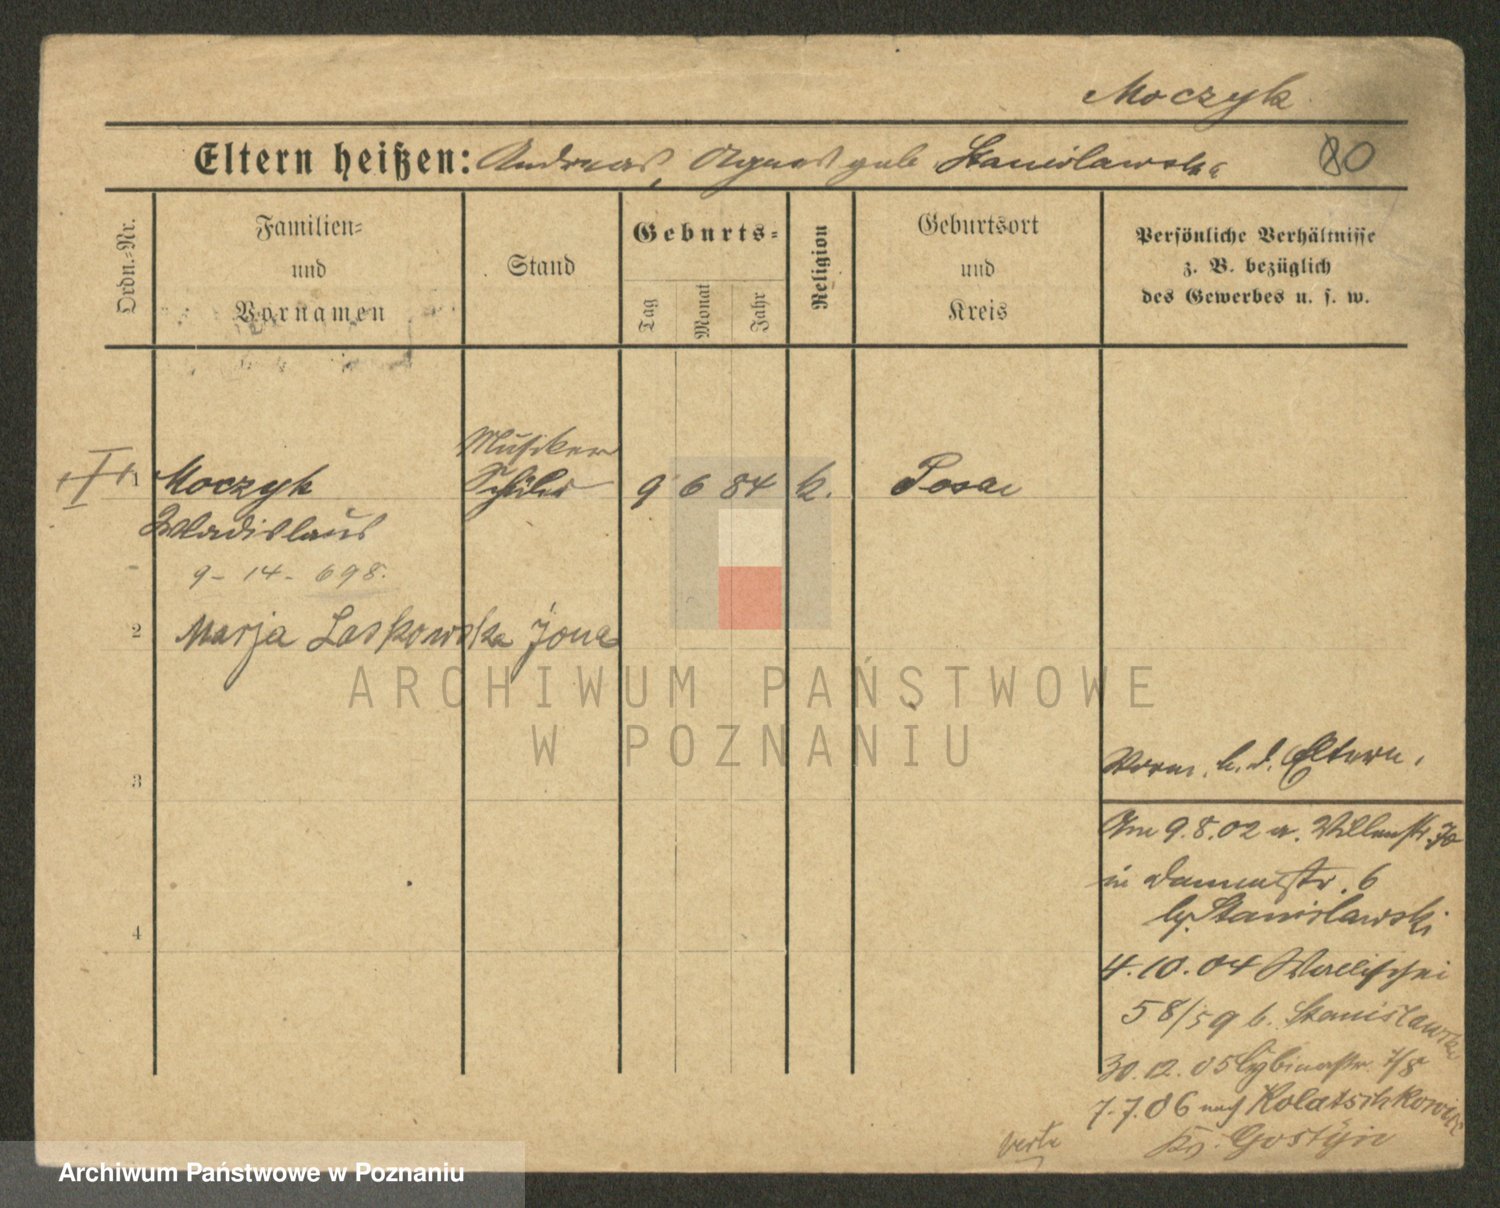 Moczyk
Eltern heißen: Andreas, Agnes geb Stanislawska
80
Ordn.-Nr.
Familien-
und
Vornamen
Stand
Geburts-
Tag
Monat
Jahr
Religion
Geburtsort
und
Kreis
Persönliche Verhältnisse
z. B. bezüglich
des Gewerbes u. s. w.
Musiker
I 1 Moczyk Schüler 9 6 84 k. Posen
Wladislaus
9-14-698.
2 Marja Laskowska żona
ARCHIWUM PAŃSTWOWE
W POZNANIU
3
Vorm. b. d. Eltern.
Am 9.8.02 v.
in Dammstr. 6
b. Stanislawski
4
4.10.04 Wallischei
58/59 b. Stanislawska
30.12.05 Cybinastr. 7/8
7.7.06 nach Kolatschkowice
Kr. Gostÿn
verte
Archiwum Państwowe w Poznaniu